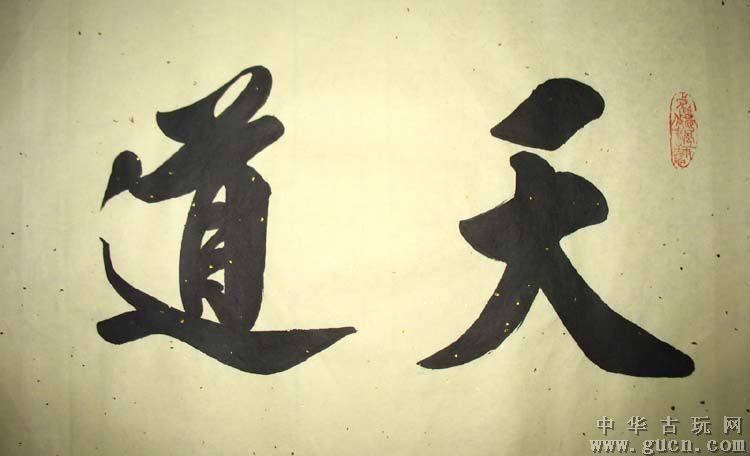 天道
中华古玩网
www.gucn.com